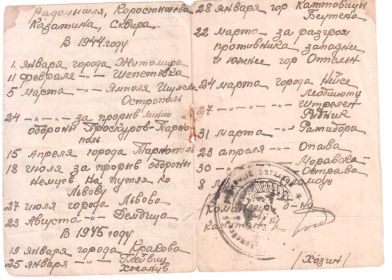 Радомышля, Коростышева
Казатина, Сквира.
В 1944 году
1. января города Житомира
11 февраля -"- Шепетовка
5 марта -"- Ямполя Шумск
Острополь
24 -"- за прорыв линии
обороны Проскуров-Тарно-
поль
15 Апреля города Тарнополь
18 июля за прорыв обороны
немцев на путях ко
Львову
27 июля города Львова
23 Августа -"- Дембица
В 1945 году
19 января города Кракова
25 января -"- Глейвиц
28 января гор Каттовицы
Беутен
22 марта за разгром
противника западнее
и южнее гор Оппельн
24 марта города Нейсе
Леобшютц
27 -"- Штрелен
Рыбник
31 марта -"- Ратибора
23 апреля -"- Опава
30 -"- Моравска
Острава
8
/Хозин/